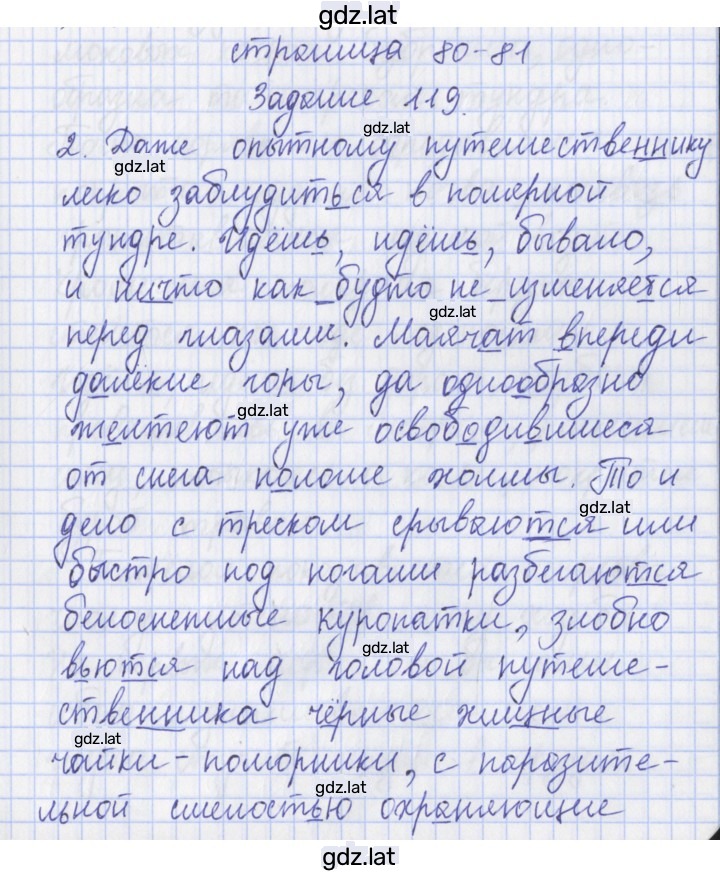 gdz.lat
страница 80-81
Задание 119.
gdz.lat
2. Даже опытному путешественнику
gdz.lat
легко заблудиться в полярной
тундре. Идёшь, идёшь, бывало,
и ничто как будто не изменяется
gdz.lat
перед глазами. Маячат впереди
далёкие горы, да однообразно
gdz.lat
желтеют уже освободившиеся
от снега пологие холмы. То и
gdz.lat
дело с треском срываются или
быстро под ногами разбегаются
белоснежные куропатки, злобно
gdz.lat
вьются над головой путеше-
ственника чёрные хищные
gdz.lat
чайки-поморники, с поразите-
gdz.lat
льной смелостью охраняющие
gdz.lat